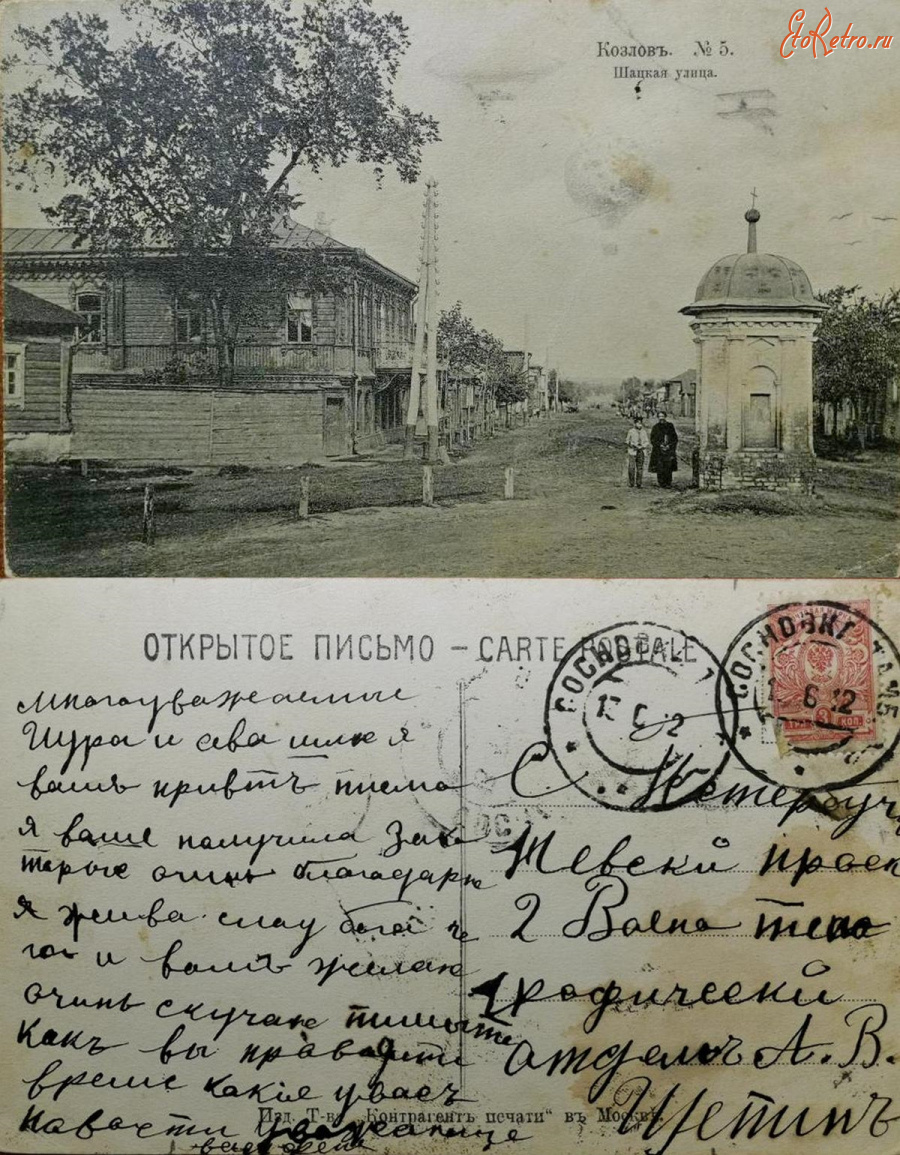 EtoRetro.ru
Козловъ. № 5.
Шацкая улица.
ОТКРЫТОЕ ПИСЬМО – CARTE POSTALE
СОСНОВКА ТАМБ
6 12
3 КОП.
Многоуважаемые
Шура и ава шлю я
вамъ привтъ писма
я ваше палучила За к
торые очинь благадарю
я жива слау богу че
го и вамъ желаю
очинь скучаю пишыте
какъ вы праводити
време какие у васъ
навасти
С Петербу
Невски прос
2 Воено теле
графически
отделъ А. В.
Щетинъ
Изд. Т-ва „Контрагентъ печати“ въ Москвѣ.